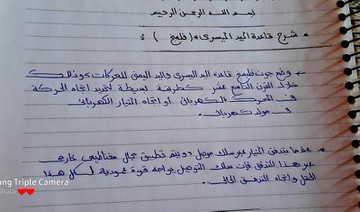 بسم الله الرحمن الرحيم
* شرح قاعدة اليد اليسرى (فلمنج) :
* وضع جون فلمنج قاعدة اليد اليسرى واليد اليمنى للمحركات وذلك
خلال القرن التاسع عشر كطريقة بسيطة لتحديد اتجاه الحركة
في المحرك الكهربائي او اتجاه التيار الكهربائي
في مولد كهربائي.
* عندما يتدفق التيار عبر سلك موصل ويتم تطبيق مجال مغناطيسي خارجي
عبر هذا التدفق فإن سلك التوصيل يواجه قوة عمودية لكل هذا
المجال واتجاه التدفق الحالي.
ung Triple Camera